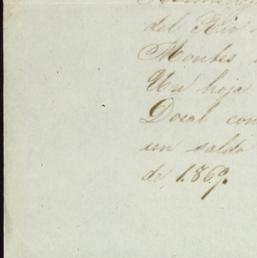 del Rio
Montes
Un hoja
Doral con
un saldo
de, 1869.